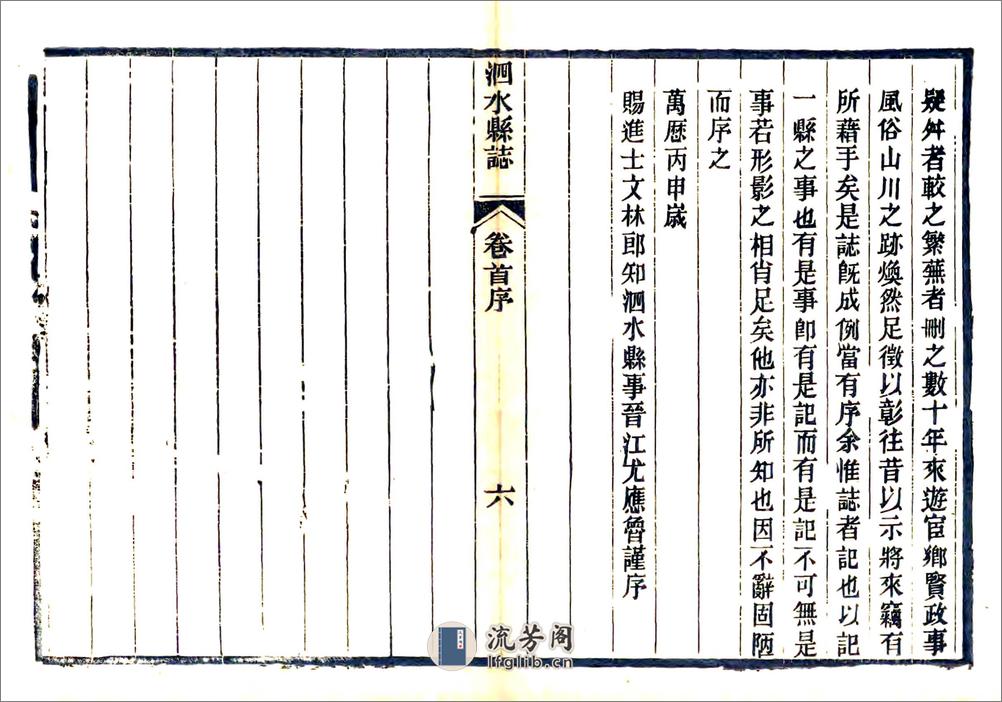 疑舛者較之繁蕪者刪之數十年來遊宦鄉賢政事
風俗山川之跡煥然足徵以彰往昔以示將來竊有
所藉手矣是誌旣成例當有序余惟誌者記也以記
一縣之事也有是事卽有是記而有是記不可無是
事若形影之相肖足矣他亦非所知也因不辭固陋
而序之
萬歷丙申歲
賜進士文林郎知泗水縣事晉江尤應魯謹序
泗水縣誌
卷首序
六
流芳阁
lfglib.cn